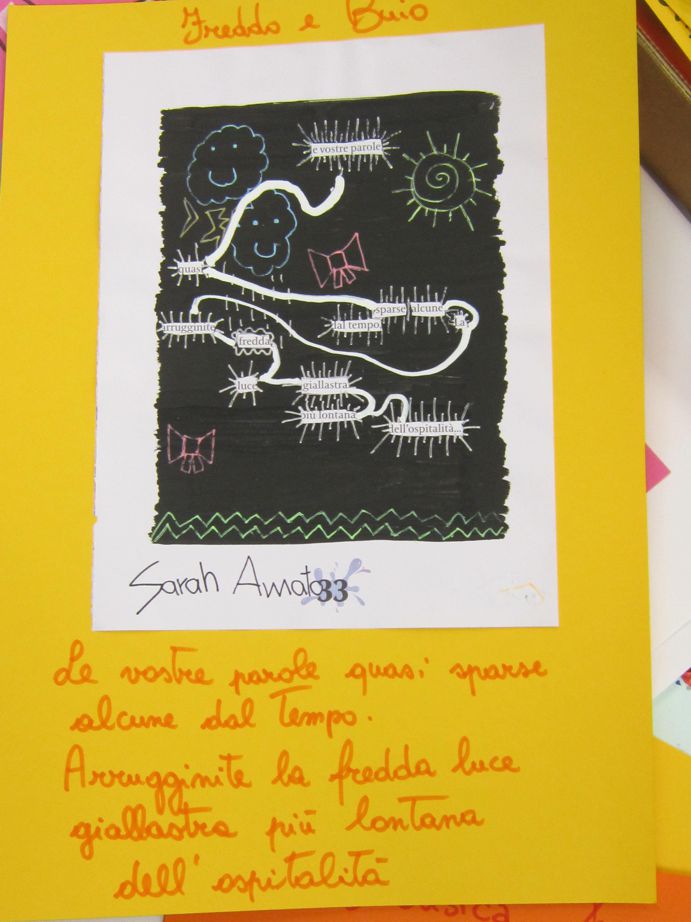 Freddo e Buio
e vostre parole
quasi
sparse alcune
dal tempo.
La
arrugginite
fredda
luce
giallastra
più lontana
dell'ospitalità...
Sarah Amato 33
Le vostre parole quasi sparse
alcune dal Tempo.
Arrugginite la fredda luce
giallastra più lontana
dell'ospitalità